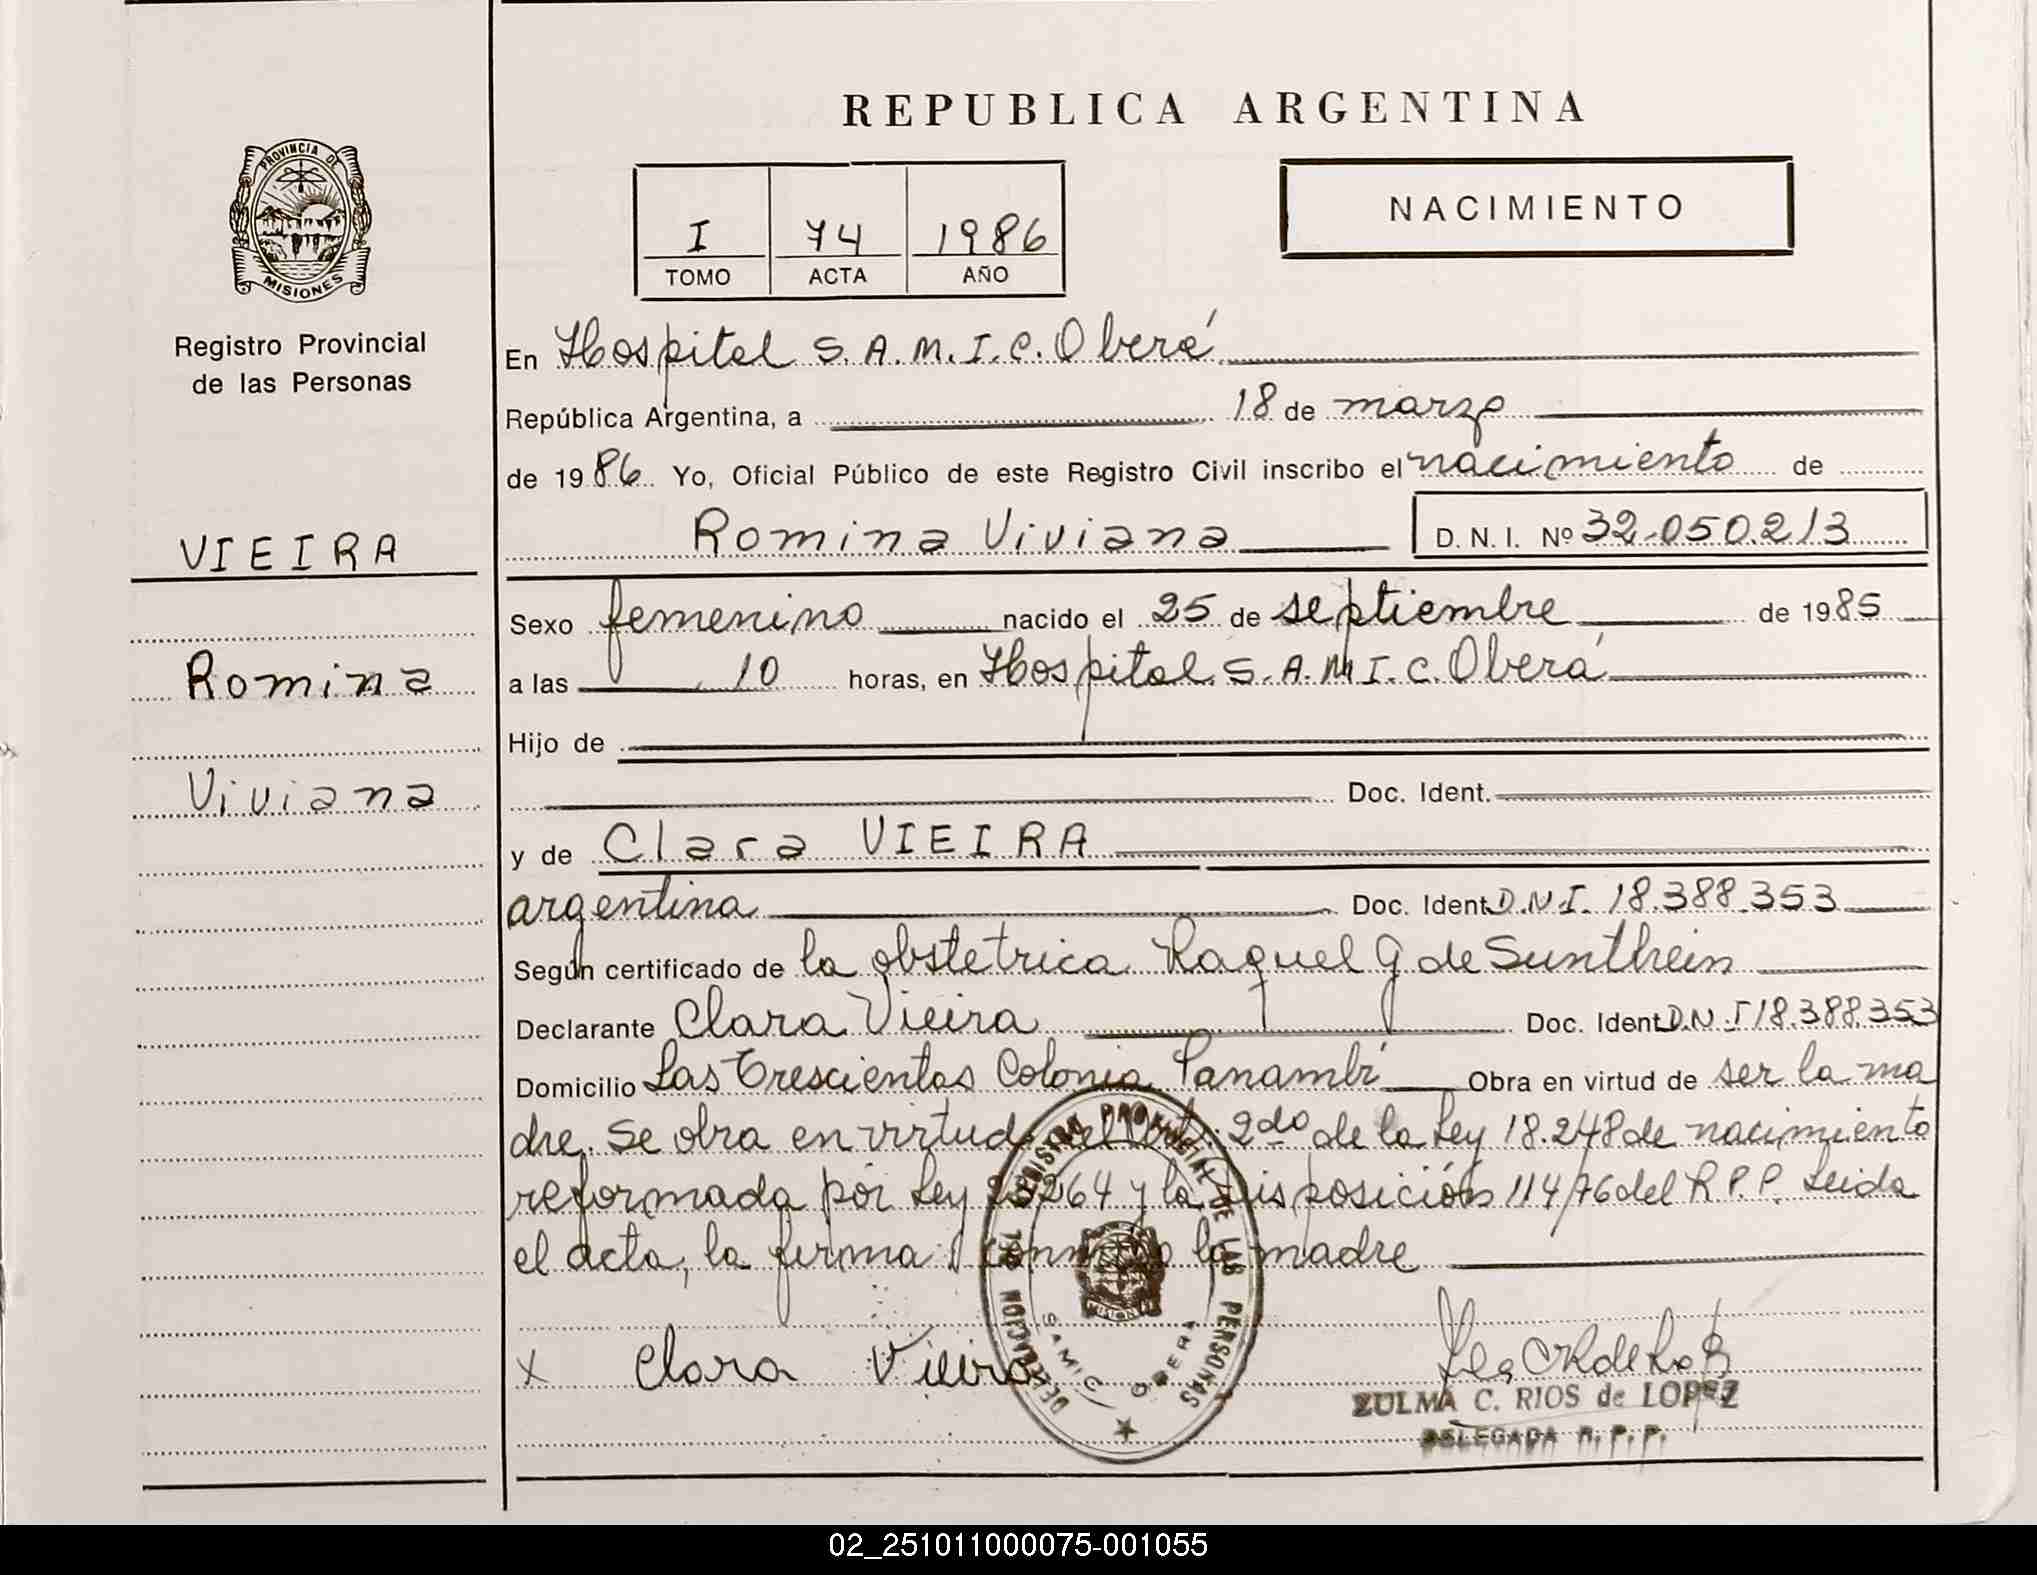 REPUBLICA ARGENTINA
PROVINCIA DE
MISIONES
I 74 1986
TOMO ACTA AÑO
NACIMIENTO
Registro Provincial
de las Personas
VIEIRA
Romina
Viviana
En Hospital S.A.M.I.C. Oberá
República Argentina, a 18 de marzo
de 1986 Yo, Oficial Público de este Registro Civil inscribo el nacimiento de
Romina Viviana D. N. I. Nº 32.050.213
Sexo femenino nacido el 25 de septiembre de 1985
a las 10 horas, en Hospital S.A.M.I.C. Oberá
Hijo de
Doc. Ident.
y de Clara VIEIRA
argentina Doc. Ident D.N.I. 18.388.353
Según certificado de la obstetrica Raquel G de Sunthein
Declarante Clara Vieira Doc. Ident D.N.I 18.388.353
Domicilio Las Trescientas Colonia Panambí Obra en virtud de ser la ma
dre. Se obra en virtud del Art. 2do de la Ley 18.248 de nacimiento
reformada por Ley 23264 y la disposición 114/76 del R.P.P. Leida
el acta, la firma conmigo la madre
x Clara Vieira
REGISTRO PROVINCIAL DE LAS PERSONAS
DELEGACION
SAMIC OBERA
MISIONES
ZULMA C. RIOS de LOPEZ
DELEGADA R. P. P.
02_251011000075-001055